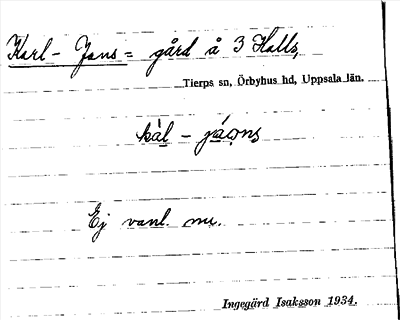 Karl - Jans = gård å 3 Halls,
Tierps sn, Örbyhus hd, Uppsala län.
kàl - jáǫns
Ej vanl. nu.
Ingegärd Isaksson 1934.